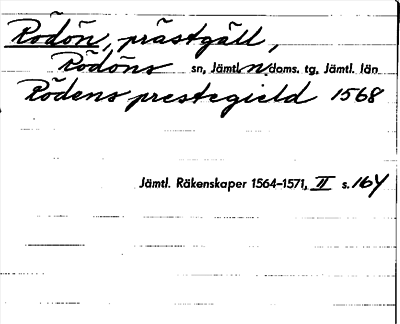 Rödön, prästgäll,
Rödöns sn, Jämtl. n. doms. tg, Jämtl. län
Rödens prestegield 1568
Jämtl. Räkenskaper 1564-1571, II s. 164